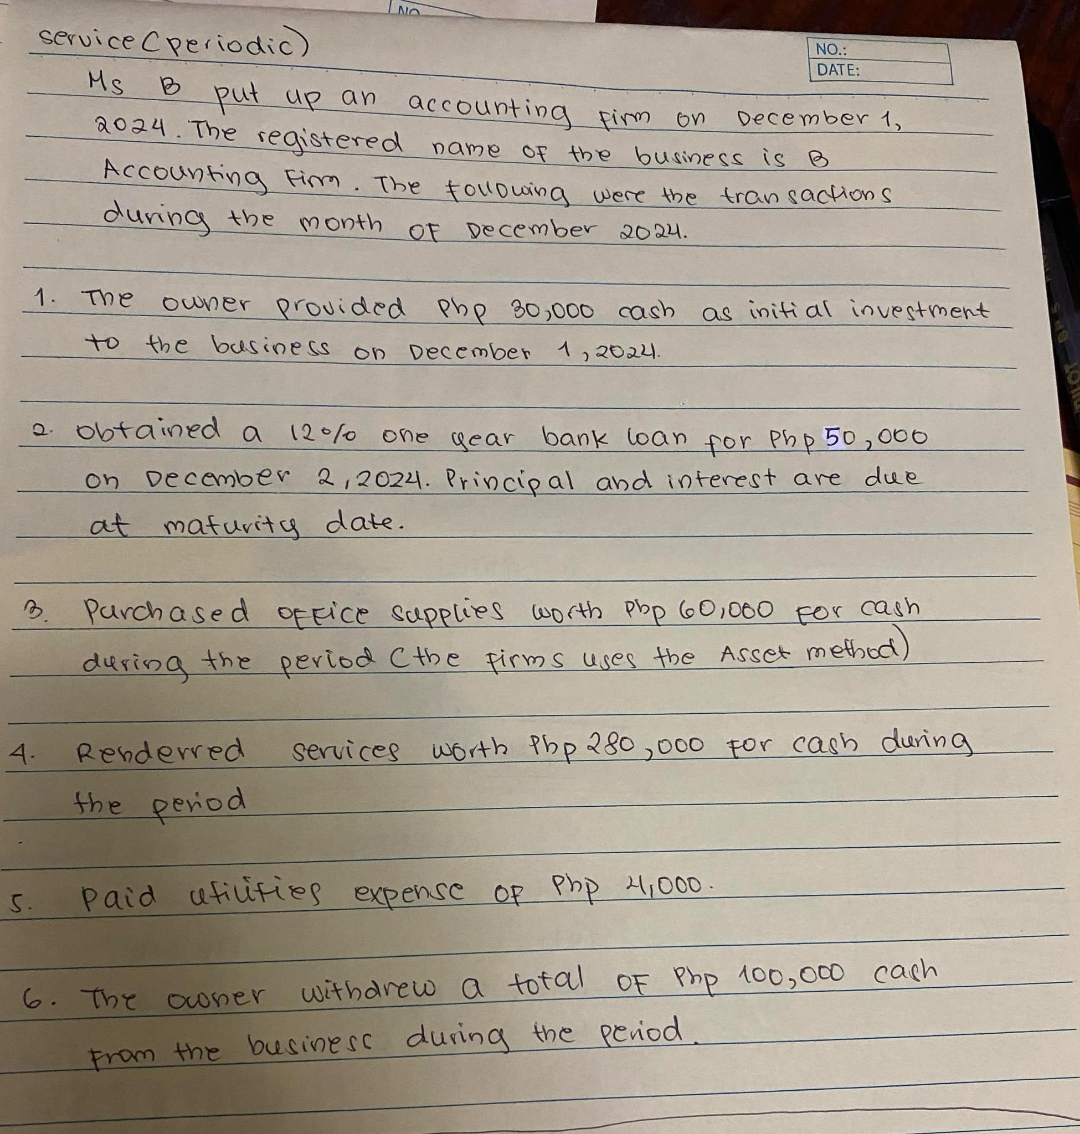 NO
service (periodic)
NO.:
DATE:
Ms B put up an accounting firm on December 1,
2024. The registered name of the business is B
Accounting Firm. The following were the transactions
during the month of December 2024.
1. The owner provided Php 30,000 cash as initial investment
to the business on December 1, 2024.
2. Obtained a 12% one year bank loan for Php 50,000
on December 2, 2024. Principal and interest are due
at maturity date.
3. Purchased office supplies worth Php 60,000 for cash
during the period (the firms uses the Asset method)
4. Renderred services worth Php 280,000 for cash during
the period
5. Paid utilities expense of Php 4,000.
6. The owner withdrew a total of Php 100,000 cash
from the business during the period.